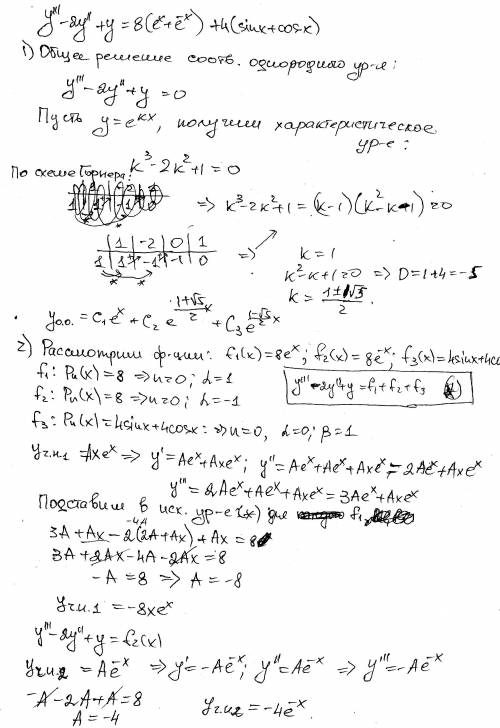 y''' - 2y'' + y = 8(eˣ + e⁻ˣ) + 4(sinx + cosx)
1) Общее решение соотв. однородного ур-я:
y''' - 2y'' + y = 0
Пусть y = eᵏˣ, получим характеристическое
ур-е:
По схеме Горнера: k³ - 2k² + 1 = 0
⇒ k³ - 2k² + 1 = (k-1)(k² - k - 1) = 0
| 1 | -2 | 0 | 1
1 | 1 | -1 | -1 | 0 ⇒
k = 1
k² - k + 1 = 0 ⇒ D = 1 + 4 = -5
k = (1 ± √5)/2.
y₀.₀. = C₁eˣ + C₂ e^((1+√5)/2 x) + C₃ e^((1-√5)/2 x)
2) Рассмотрим ф-ции: f₁(x) = 8eˣ; f₂(x) = 8e⁻ˣ; f₃(x) = 4sinx + 4co
f₁: Pn(x) = 8 ⇒ n = 0; α = 1
y''' - 2y'' + y = f₁ + f₂ + f₃
f₂: Pn(x) = 8 ⇒ n = 0; α = -1
f₃: Pn(x) = 4sinx + 4cosx: ⇒ n = 0, α = 0; β = 1
yч.н.1 = Axeˣ ⇒ y' = Aeˣ + Axeˣ; y'' = Aeˣ + Aeˣ + Axeˣ = 2Aeˣ + Axeˣ
y''' = 2Aeˣ + Aeˣ + Axeˣ = 3Aeˣ + Axeˣ
Подставим в исх. ур-е (x) для f₁
-4A
3A + Ax - 2(2A + Ax) + Ax = 8
3A + 2Ax - 4A - 2Ax = 8
-A = 8 ⇒ A = -8
yч.н.1 = -8xeˣ
y''' - 2y'' + y = f₂(x)
yч.н.2 = Ae⁻ˣ ⇒ y' = -Ae⁻ˣ; y'' = Ae⁻ˣ ⇒ y''' = -Ae⁻ˣ
-A - 2A + A = 8
A = -4
yч.н.2 = -4e⁻ˣ.